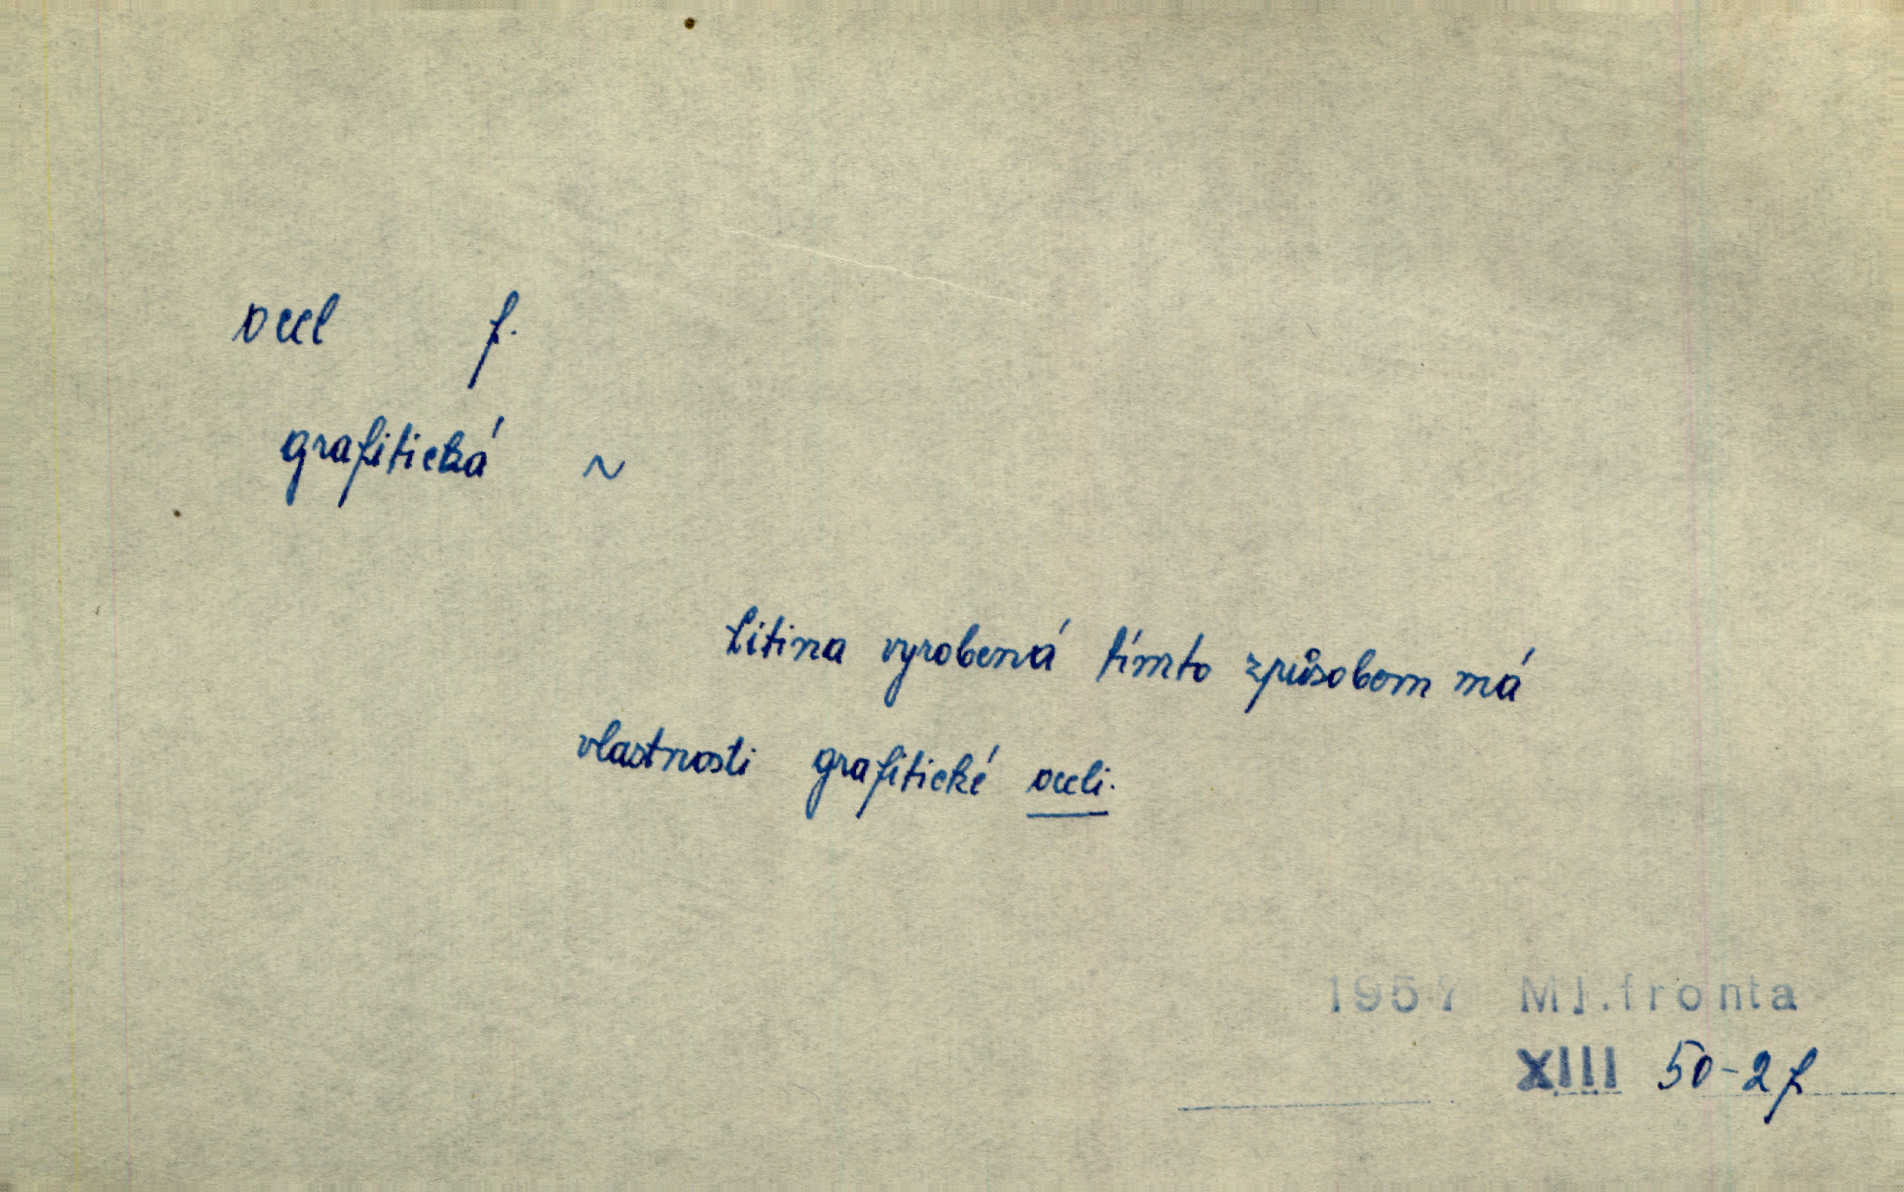 ocel f.
grafitická ~
Litina vyrobená tímto způsobem má
vlastnosti grafitické oceli.
1957 Ml.fronta
XIII 50-2f